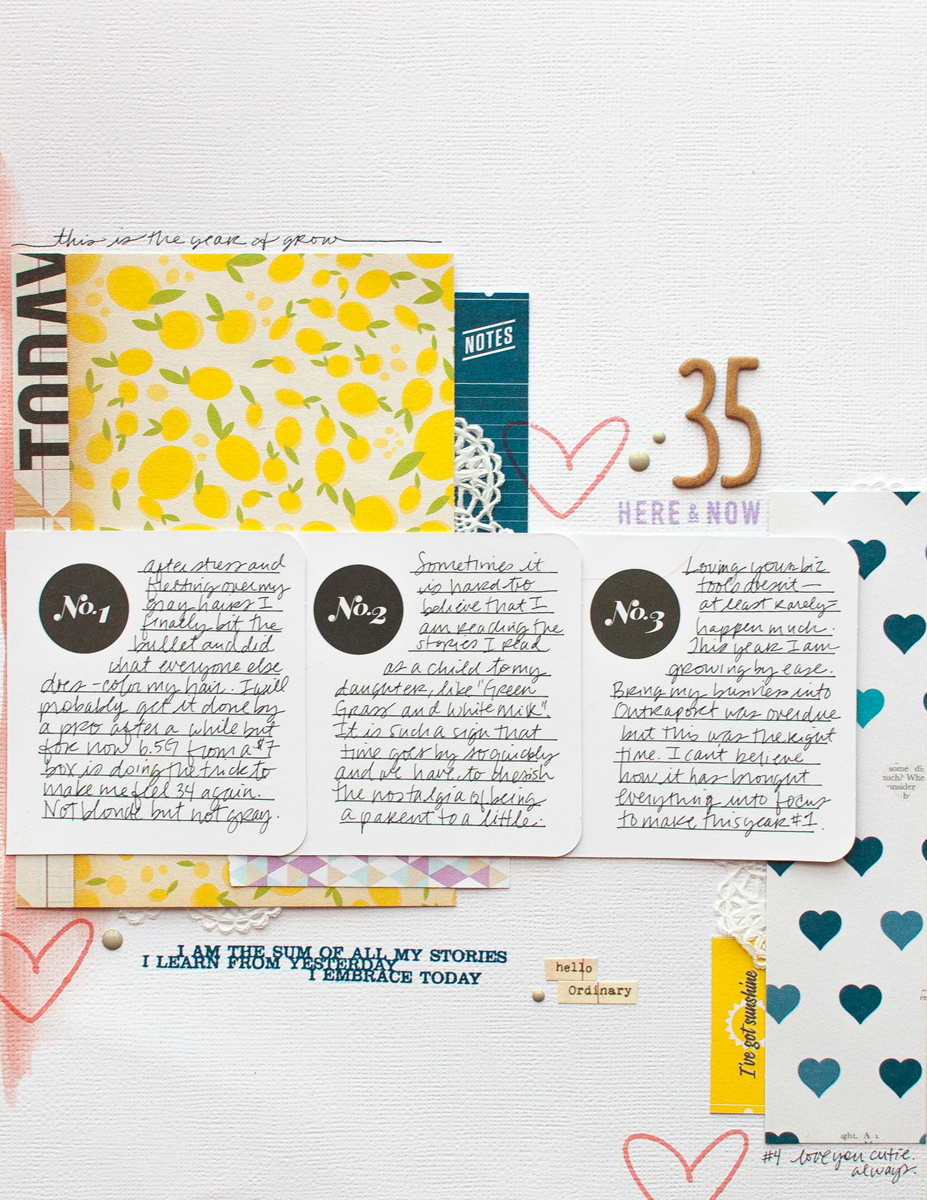 this is the year of grow
TODAY
NOTES
35
HERE & NOW
No.1
after stress and
fretting over my
gray hairs I
finally bit the
bullet and did
what everyone else
does - color my hair. I will
probably get it done by
a pro after a while but
for now 6.5G from a $7
box is doing the trick to
make me feel 34 again.
Not blonde but not gray.
No.2
Sometimes it
is hard to
believe that I
am reading the
stories I read
as a child to my
daughter, like "Green
Grass and White Milk".
It is such a sign that
time goes by so quickly
and we have to cherish
the nostalgia of being
a parent to a little.
No.3
Loving your biz
tools doesn't—
at least rarely—
happen much.
This year I am
growing by ease.
Bring my business into
Ontraport was overdue
but this was the right
time. I can't believe
how it has brought
everything into focus
to make this year #1.
some di
such? Whe
onsider
b
I AM THE SUM OF ALL MY STORIES
I LEARN FROM YESTERDAY
I EMBRACE TODAY
hello
Ordinary
I've got sunshine
ight. A
#4 love you cutie.
always.